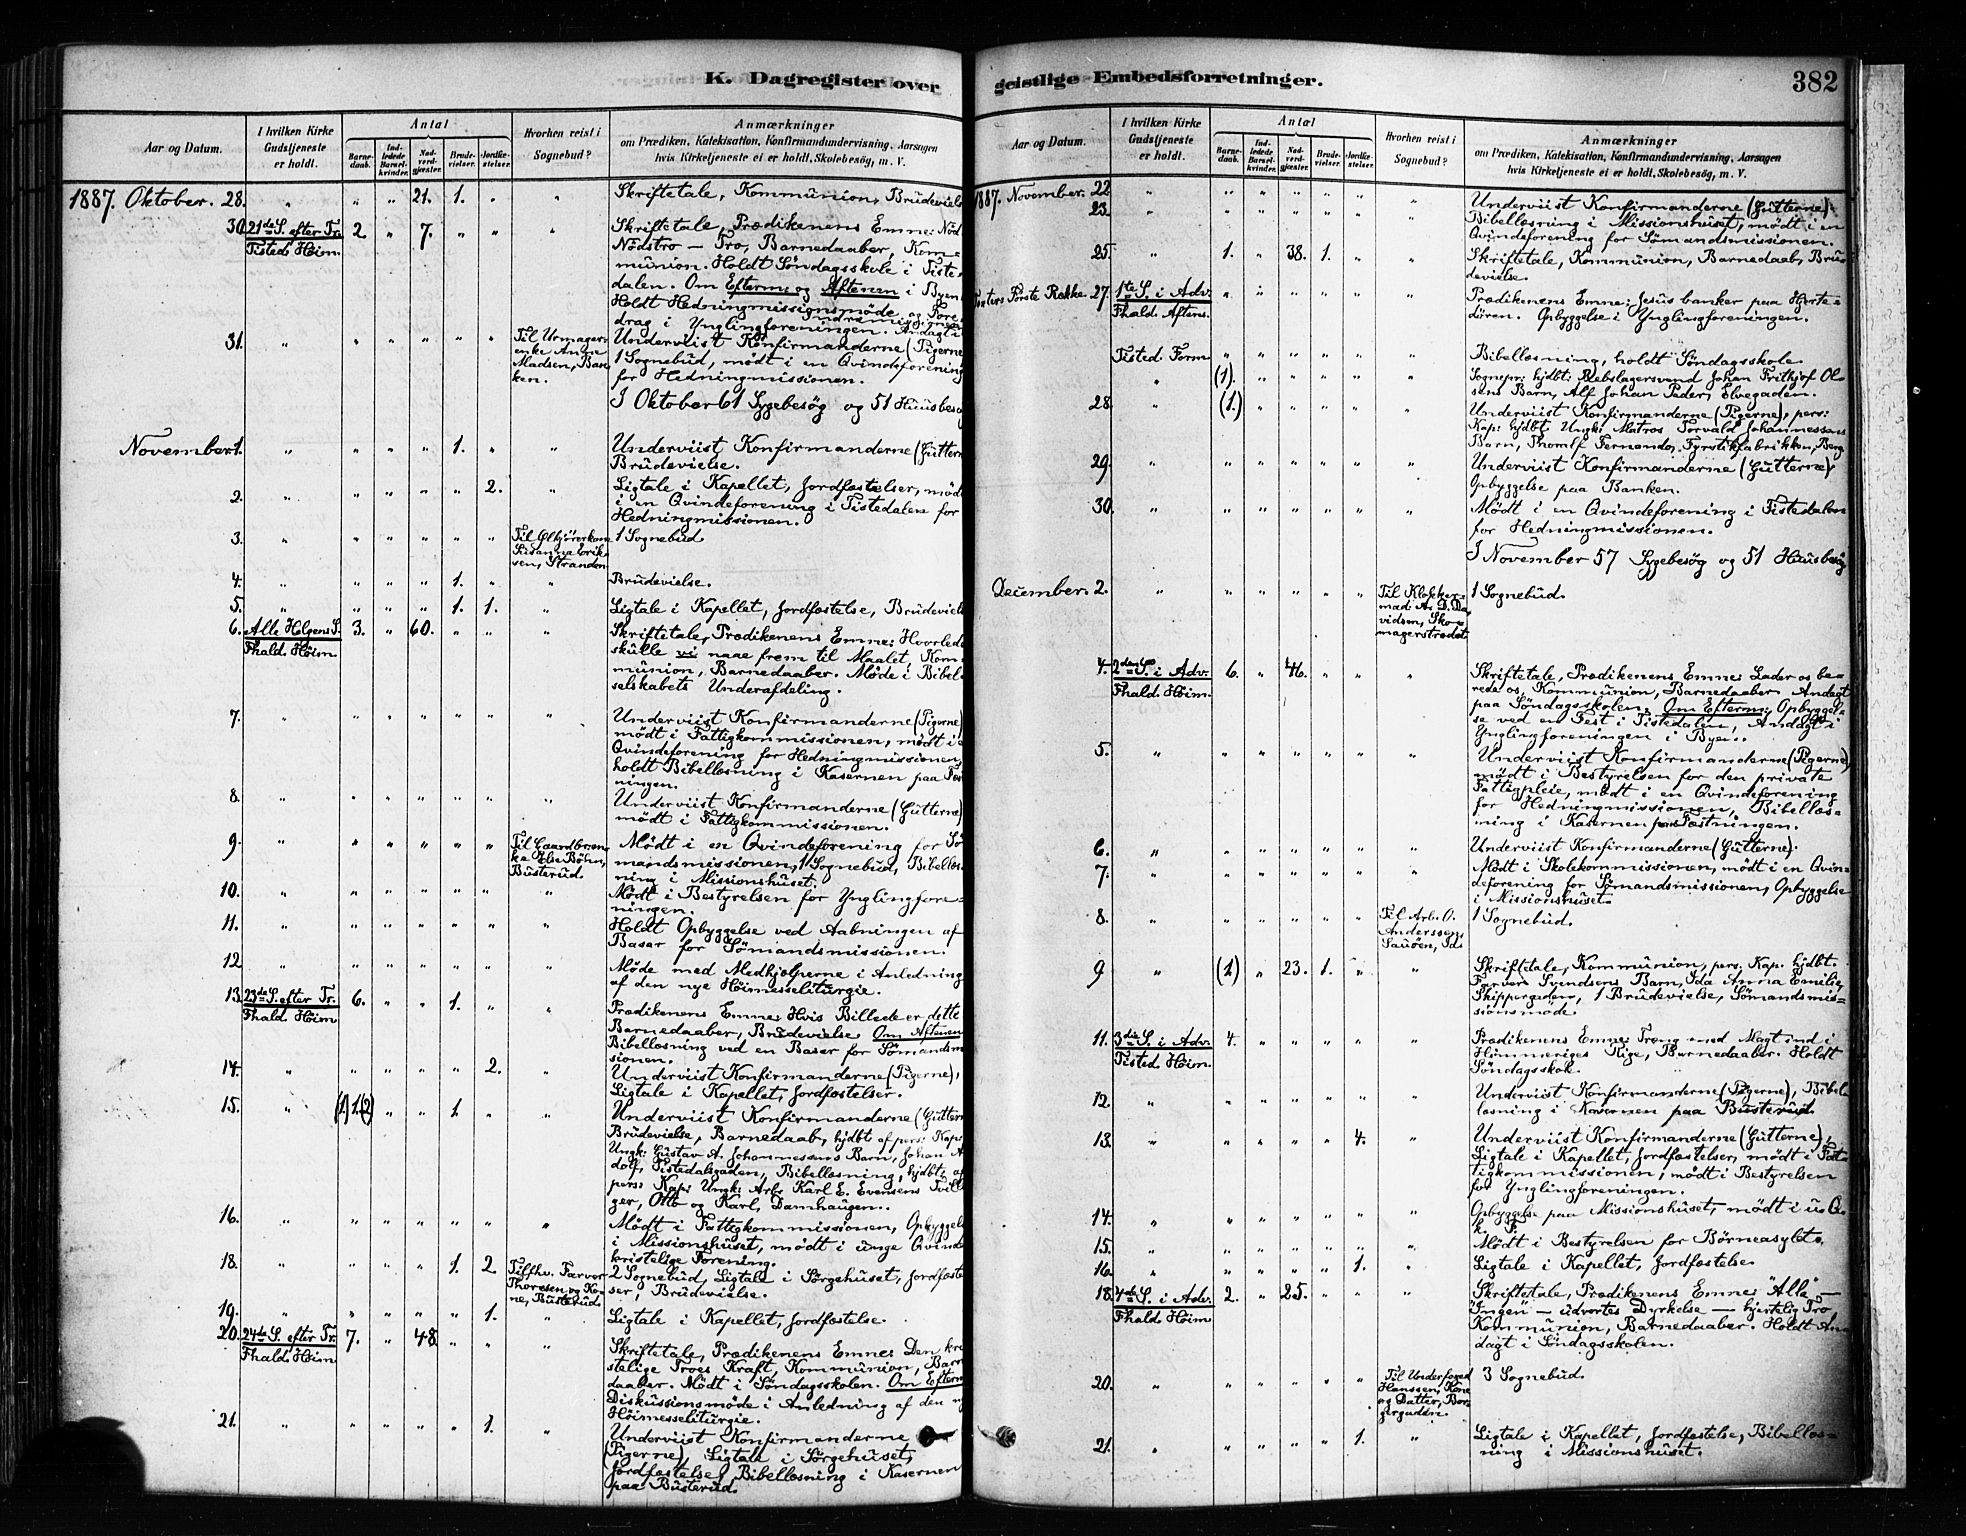 K. Dagregister over
Aar og Datum.
I hvilken Kirke Gudstjeneste er holdt.
Antal
Barnedaab.
Indledede Barselkvinder.
Nadverdgjæster.
Brudevielser.
Jordfæstelser.
Hvorhen reist i Sognebud?
Anmærkninger
om Prædiken, Katekisation, Konfirmandundervisning, Aarsagen
hvis Kirketjeneste ei er holdt, Skolebesög, m. V.
1887. Oktober. 28. " " " 21. 1. " " Skriftetale, Kommunion, Brudeviel
30. 21de S. efter Tr. 2. " 7. " " " Skriftetale, Prædikenens Emne: Nöd
Tisted. Höim. Nödstro — Tro, Barnedaaber, Kom-
munion. Holdt Söndagsskole i Tiste-
dalen. Om Efterm. og Aftenen i Byen
Holdt Hedningmissionsmöde og Fore-
drag i Ynglingforeningen.
31. " " " " " " Til Urmager- Underviist Konfirmanderne (Pigerne
enke Anne 1 Sognebud, mödt i en Qvindeforening
Madsen, Ban- for Hedningmissionen.
ken.
I Oktober 61 Sygebesög og 51 Huusbesö
November 1. " " " " 1. " " Underviist Konfirmanderne (Gutter
Brudevielse.
2. " " " " " 2. " Ligtale i Kapellet, Jordfæstelser, mödt
i en Qvindeforening i Tistedalen for
Hedningmissionen.
3. " " " " " " Til Ölkjörerkone 1 Sognebud
Susanna Erik-
sen, Stranden
4. " " " " 1. " " Brudevielse.
5. " " " " 1. 1. " Ligtale i Kapellet, Jordfæstelse, Brudeviel
6. Alle Helgens S. 3. " 60. " " " Skriftetale, Prædikenens Emne: Hvorled
Fhald. Höim. skulle vi naae frem til Maalet, Kom-
munion, Barnedaaber. Möde i Bibel-
selskabets Underafdeling.
7. " " " " " " " Underviist Konfirmanderne (Pigerne)
mödt i Fattigkommissionen, mödt i
Qvindeforening for Hedningmissionen,
holdt Bibellæsning i Kasernen paa Fæs
ningen.
8. " " " " " " " Underviist Konfirmanderne (Gutterne)
mödt i Fattigkommissionen.
9. " " " " " " Til Gaardbren- Mödt i en Qvindeforening for Sö
ke Else Böhn, mandsmissionen, 1 Sognebud, Bibellæs-
Busterud. ning i Missionshuset.
10. " " " " " " " Mödt i Bestyrelsen for Ynglingfore-
ningen.
11. " " " " " " " Holdt Opbyggelse ved Aabningen af
Basar for Sömandsmissionen.
12 " " " " " " " Möde med Medhjælperne i Anledning
af den nye Höimesseliturgie.
13. 23de S. efter Tr. 6. " " 1. " " Prædikenens Emne: Hvis Billede er dette
Fhald. Höim Barnedaaber, Brudevielse Om Aftenen
Bibellæsning ved en Basar for Sömandsm
sionen.
14. " " " " " 2. " Underviist Konfirmanderne (Pigerne),
Ligtale i Kapellet, Jordfæstelser.
15. " (1) 1. (2) " " 1. " " Underviist Konfirmanderne (Gutter
Brudevielse, Barnedaab, hjdbt af pers: Kap:
Ungk: Gustav A. Johannessens Barn, Johan A
dolf, Tistedalsgaden, Bibellæsning, hjdbt: af
pers: Kap: Ungk: Arb: Karl E. Evensens Tvill
ger, Otto og Karl, Damhaugen.
16. " " " " " " " Mödt i Fattigkommissionen, Opbyggel
i Missionshuset, mödt i unge Qvind
kristelige Forening.
18. " " " " 1. 2 Til fhv. Farver 2 Sognebud, Ligtale i Sörgehuset, Jordfæste
Thoresen og Ko- ser, Brudevielse.
ne, Busterud
19. " " " " " 1. " Ligtale i Kapellet, Jordfæstelse.
20. 24de S. efter Tr. 7. " 48 " " " Skriftetale, Prædikenens Emne: Den kri
Fhald. Höim stelige Troes Kraft, Kommunion, Barn
daaber. Mödt i Söndagsskolen. Om Efterm
Diskussionsmöde i Anledning af den n
Höimesseliturgie.
21. " " " " " 1. " Underviist Konfirmanderne
(Pigerne) Ligtale i Sörgehuset,
Jordfæstelse, Bibellæsning i Kasernen
paa Busterud.
geistlige Embedsforretninger.
382
Aar og Datum.
I hvilken Kirke Gudstjeneste er holdt.
Antal
Barnedaab.
Indledede Barselkvinder.
Nadverdgjæster.
Brudevielser.
Jordfæstelser.
Hvorhen reist i Sognebud?
Anmærkninger
om Prædiken, Katekisation, Konfirmandundervisning, Aarsagen
hvis Kirketjeneste ei er holdt, Skolebesög, m. V.
1887. November. 22. " " " " " " " Underviist Konfirmanderne (Gutterne)
23. " " " " " " " Bibellæsning i Missionshuset, mödt i en
Qvindeforening for Sömandsmissionen.
25. " 1. " 38. 1. " " Skriftetale, Kommunion, Barnedaab, Bru-
devielse.
Texters Förste Række. 27. 1ste S. i Adv. " " " " " " Prædikenens Emne: Jesus banker paa Hjerte-
Fhald. Aftens. dören. Opbyggelse i Ynglingforeningen.
Tisted Form " " " " " " Bibellæsning, holdt Söndagsskole.
" (1). " " " " " Sognepr: hjdbt: Rebslagersvend Johan Frithjof Ol-
sens Barn, Alf Johan Peder, Elvegaden.
28. " (1.) " " " " " Underviist Konfirmanderne (Pigerne), pers:
Kap: hjdbt. Ungk: Matros Torvald Johannessens
Barn, Thoralf Fernando, Fyrstikfabrikken, Berg
29. " " " " " " " Underviist Konfirmanderne (Gutterne)
Opbyggelse paa Banken.
30. " " " " " " " Mödt i en Qvindeforening i Tistedalen
for Hedningmissionen.
I November 57 Sygebesög og 51 Huusbesög
December. 2. " " " " " " Til Klokker- 1 Sognebud.
mad: An. D. Da-
vidsen, Sko-
magerstrædet
4. 2den S. i Adv. 6. " 46. " " " Skriftetale, Prædikenens Emne: Lader os be-
Fhald. Höim. rede os, Kommunion, Barnedaaber, Andagt
paa Söndagsskolen. Om Efterm: Opbyggel-
se ved en Fest i Tistedalen, Andagt i
Ynglingforeningen i Byen.
5. " " " " " " " Underviist Konfirmanderne (Pigerne)
mödt i Bestyrelsen for den private
Fattigpleie, mödt i en Qvindeforening
for Hedningmissionen, Bibellæs-
ning i Kasernen paa Fæstningen.
6. " " " " " " " Underviist Konfirmanderne (Gutterne).
7. " " " " " " " Mödt i Skolekommissionen, mödt i en Qvin-
deforening for Sömandsmissionen, Opbyggelse
i Missionshuset.
8. " " " " " " Til Arb. O. 1 Sognebud.
Anderssen,
Sauöen, Id:
9 " (1) " 23. 1. " " Skriftetale, Kommunion, pers. Kap: hjdbt.
Farver Svendsens Barn, Ida Anna Emilie,
Skippergaden, 1 Brudevielse, Sömandsmis-
sionsmöde.
11. 3die S. i Adv. 4. " " " " " Prædikenens Emne: Træng med Magt ind i
Tisted. Höim. Himmeriges Rige, Barnedaaber. Holdt
Söndagsskol.
12. " " " " " " " Underviist Konfirmanderne (Pigerne), Bibel-
læsning i Kasernen paa Busterud.
13. " " " " " 4. " Underviist Konfirmanderne (Gutterne),
Ligtale i Kapellet, Jordfæstelser, mödt i Fat-
tigkommissionen, mödt i Bestyrelsen
for Ynglingforeningen.
14. " " " " " " " Opbyggelse paa Missionshuset, mödt i u. Q.
k. F.
15. " " " " " " " Mödt i Bestyrelsen for Börneasylet.
16. " " " " " 1. " Ligtale i Kapellet, Jordfæstelse
18. 4de S. i Adv. 2. " 25. " " " Skriftetale, Prædikenens Emne: "Alle" —
Fhald Höim "Ingen" — udvortes Dyrkelse — hjertelig Tro
Kommunion, Barnedaaber. Holdt An-
dagt i Söndagsskolen.
20. " " " " " " Til Underfoged 3 Sognebud.
Hanssen, Kone
og Datter, Bor-
gergaden.
21. " " " " " 1. " Ligtale i Kapellet, Jordfæstelse, Bibellæs-
ning i Missionshuset.